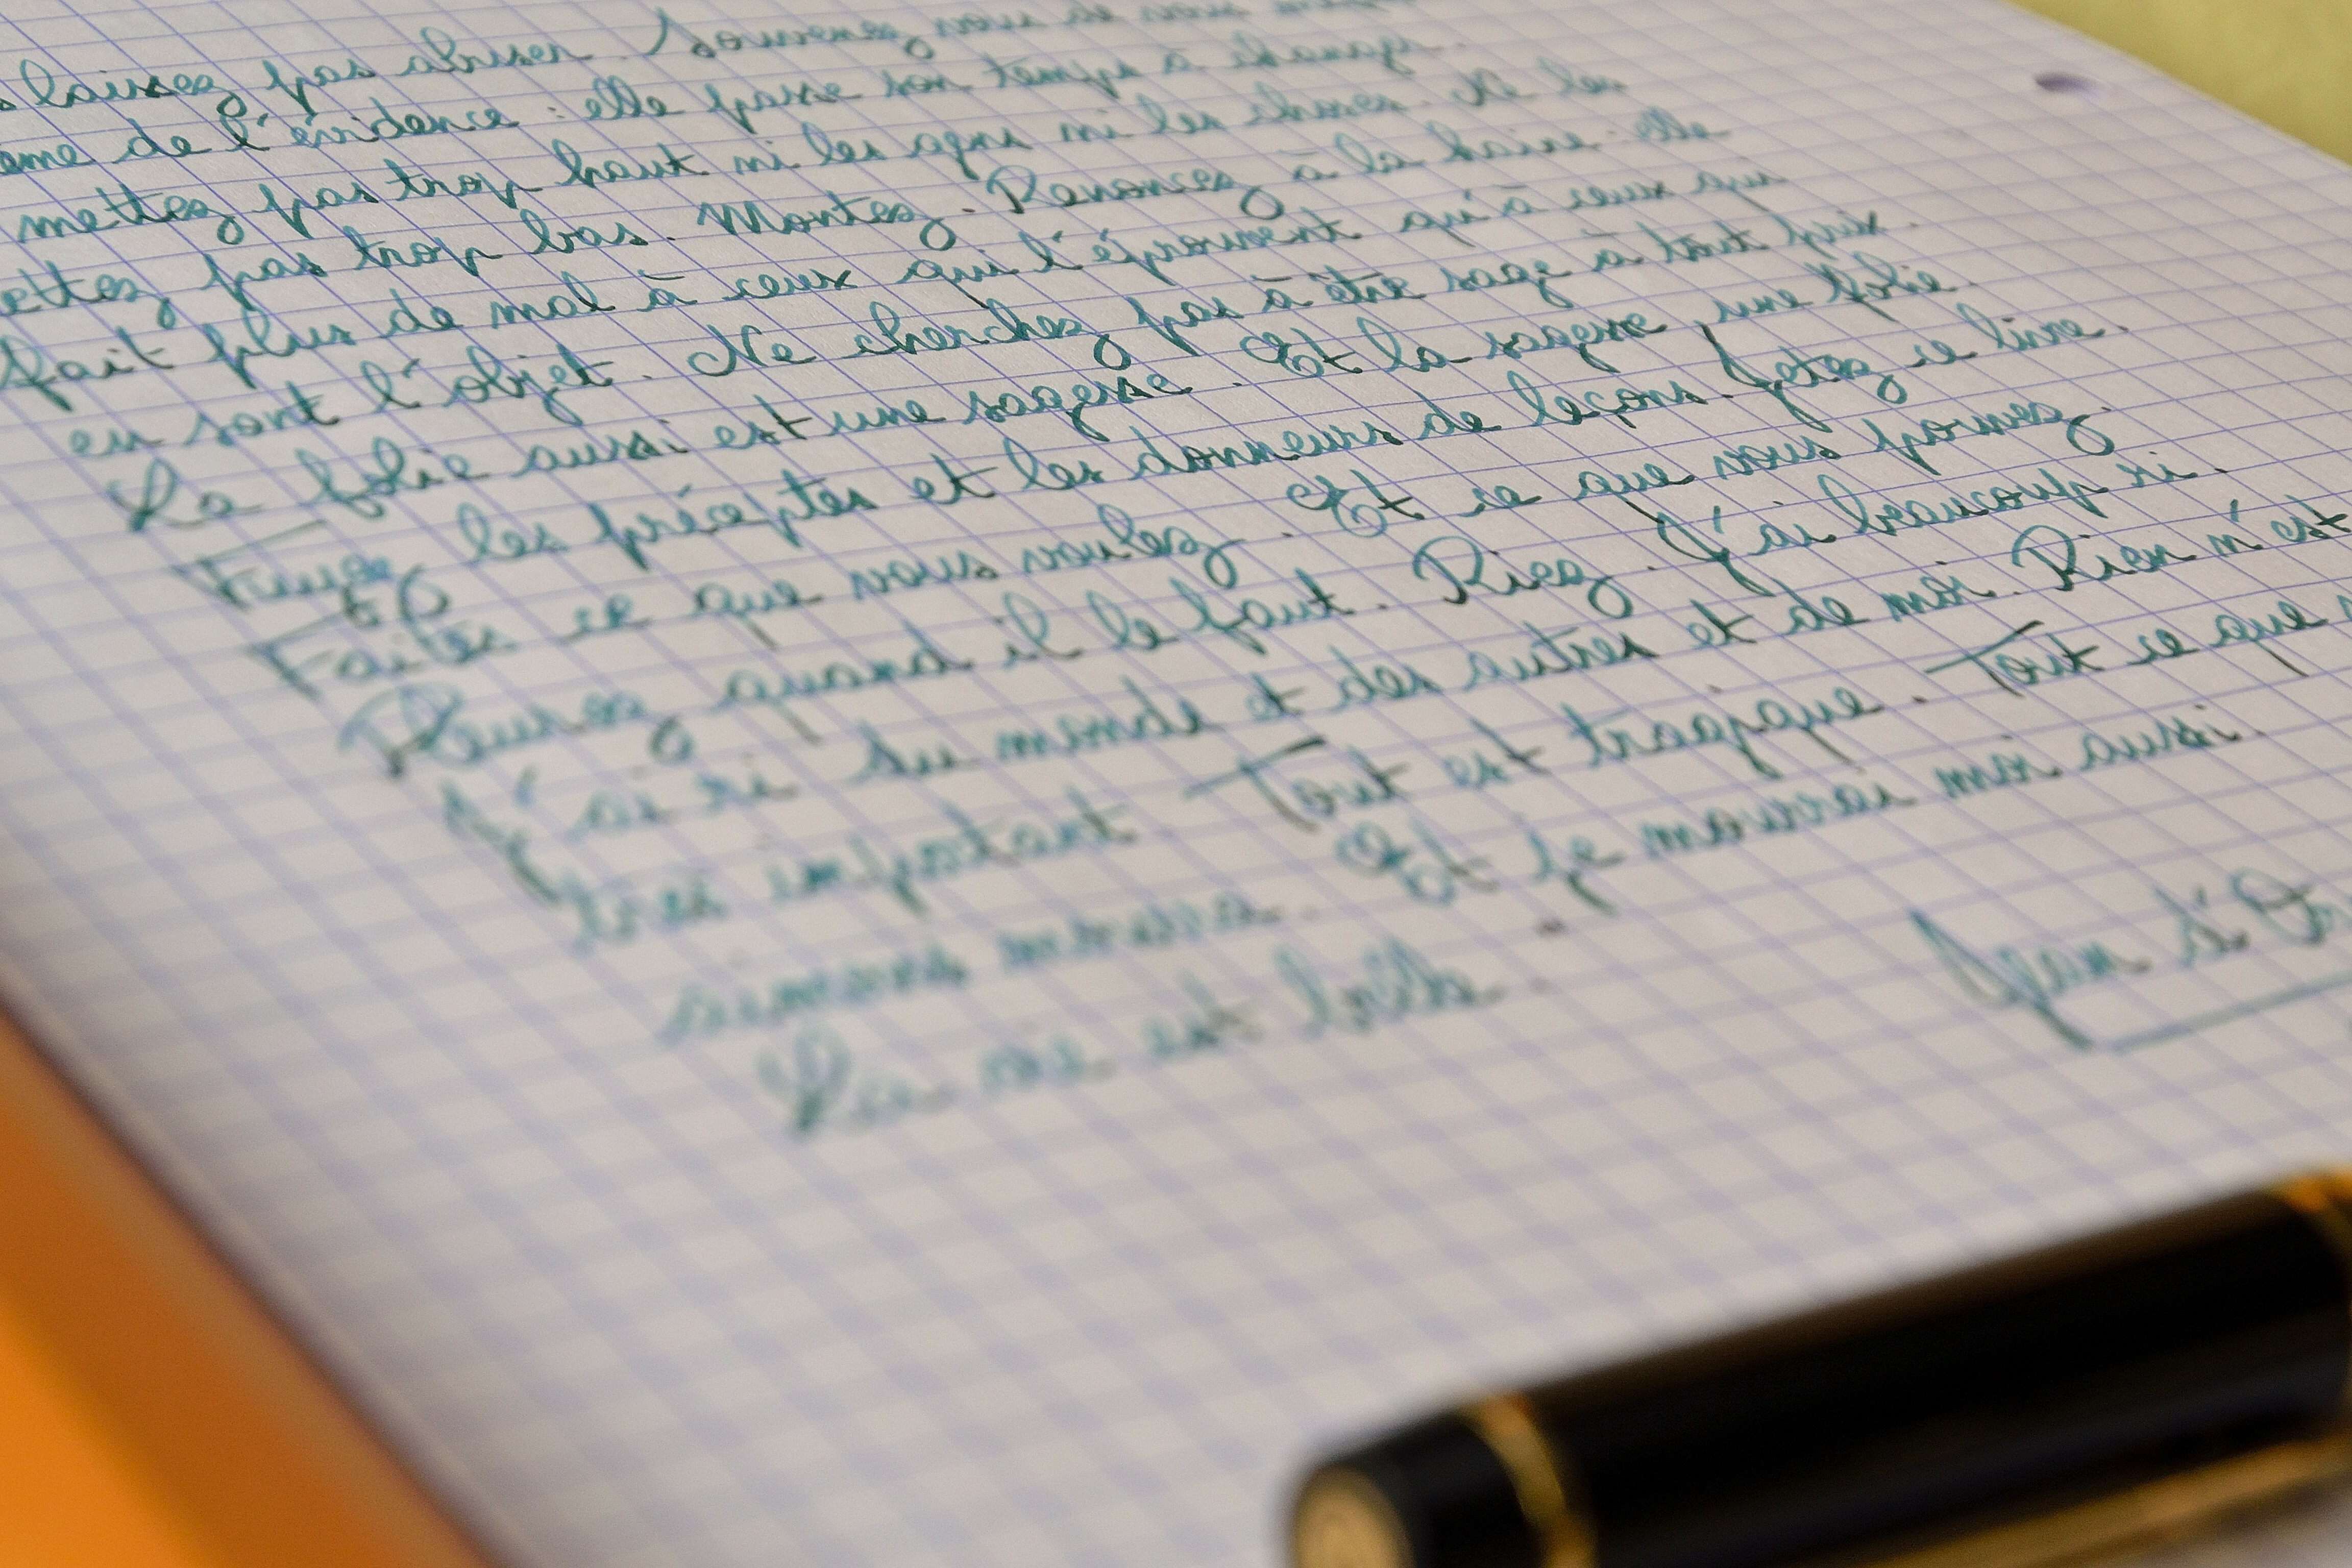 laissez pas abuser. Souvenez vous de vous
de l'évidence : elle passe son temps à changer.
mettez pas trop haut ni les gens ni les choses. Ne les
pas trop bas. Montez. Renoncez à la haine : elle
fait plus de mal à ceux qui l'éprouvent qu'à ceux qui
en sont l'objet. Ne cherchez pas à être sage à tout prix.
La folie aussi est une sagesse. Et la sagesse, une folie.
Fuyez les préceptes et les donneurs de leçons. Jetez ce livre.
Faites ce que vous voulez. Et ce que vous pouvez.
Pleurez quand il le faut. Riez. J'ai beaucoup ri.
J'ai ri du monde et des autres et de moi. Rien n'est
très important. Tout est tragique. Tout ce que
aimons mourra. Et je mourrai moi aussi.
La vie est belle."
Jean d'